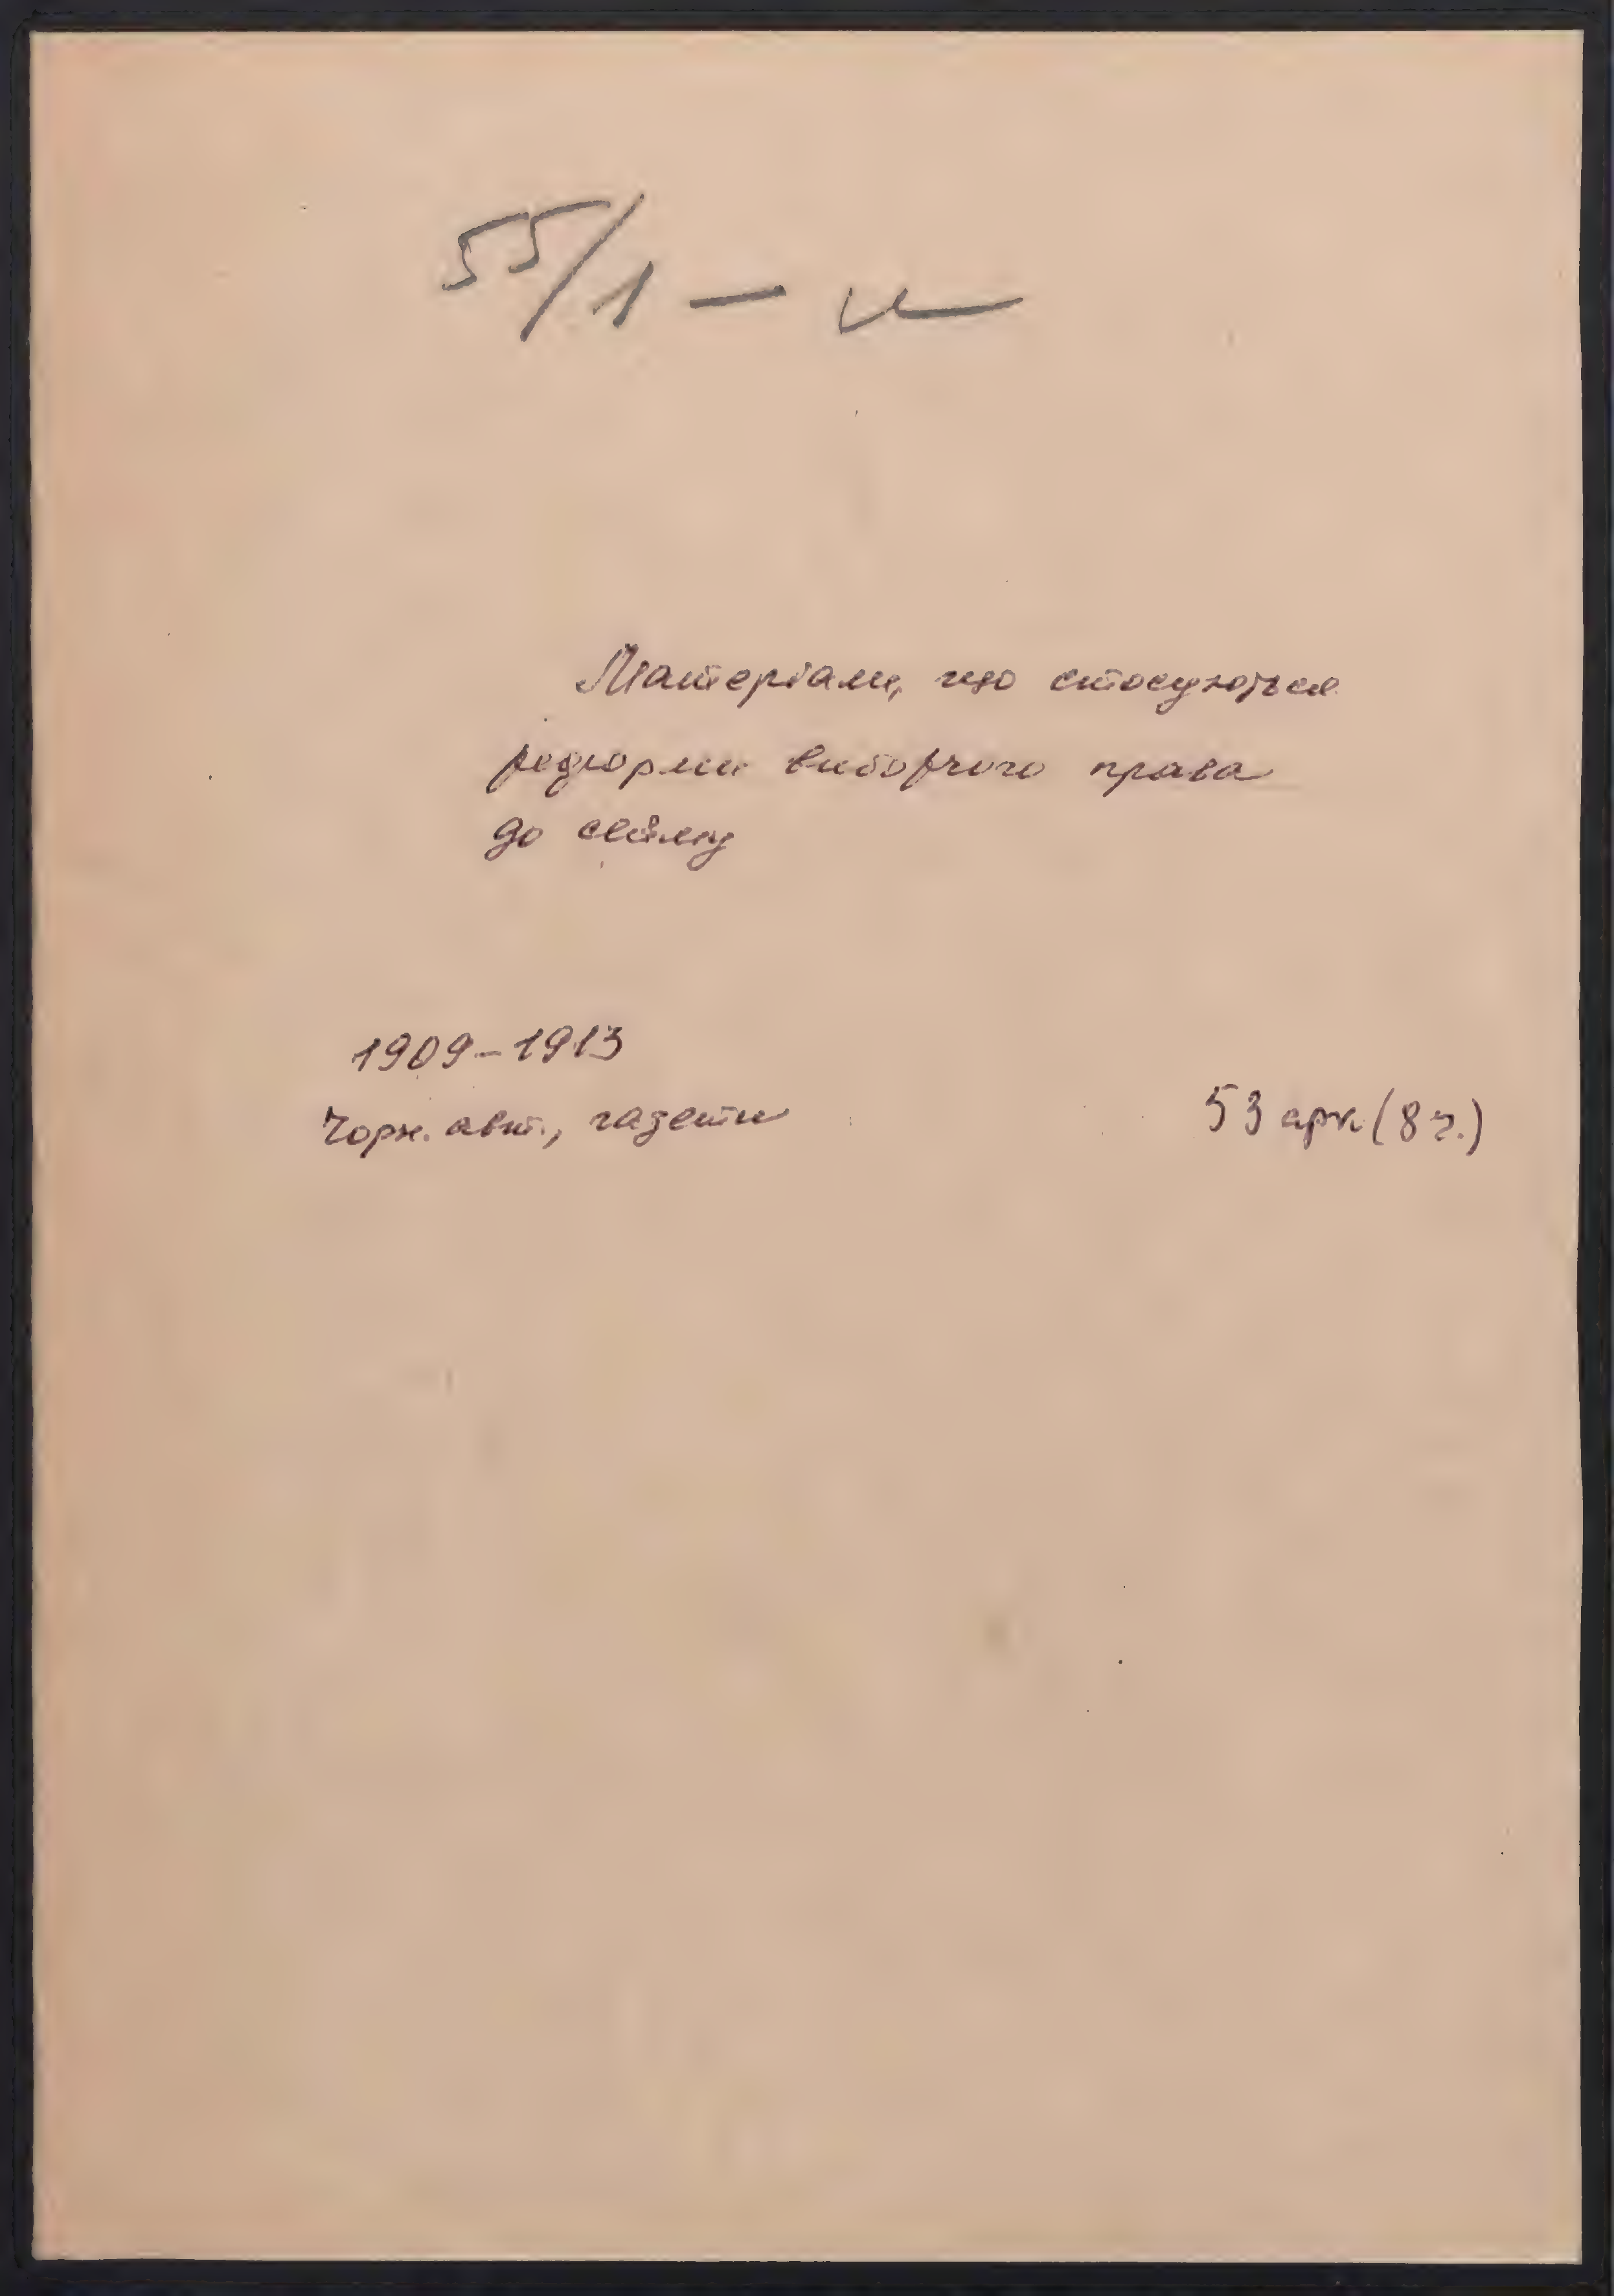 55/1 — и
Матеріали, що стосуються
реформи виборчого права
до сейму
1909-1913
Чорн. авт., газети
53 арк (8 г.)